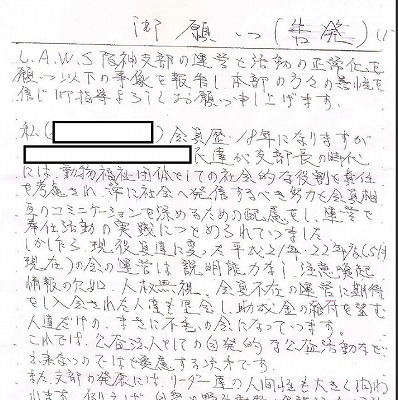 御願い(告発) (1)
L.A.W.S 阪神支部の運営と活動の正常化を
願い以下の事象を報告し本部の方々の善処を
信じ御指導よろしくお願い申し上げます。
私( )会員歴18年になりますが
氏達が支部長の時代
には、勤務福祉団体としての社会的な役割と責任
を考慮され、常に社会へ発信するべき努力と会員相
互のコミニケーションを深めるための配慮をし、運営と
奉仕活動の実践につとめられていました
しかしながら、現役員達に変った平成21年、22年度(5月
現在)の会の運営は説明能力なし、注意喚起
情報の欠如、人権無視、会員不在の運営に期待
をし入会された人達も退会し、助成金の維持を望む
人達だけの、まさに不毛の会になっています。
これでは、公益法人としての自発的な公益活動など
出来ないのではと憂慮する次第です。
また支部の発展には、リーダー度の人間性も大きく問わ
れます。